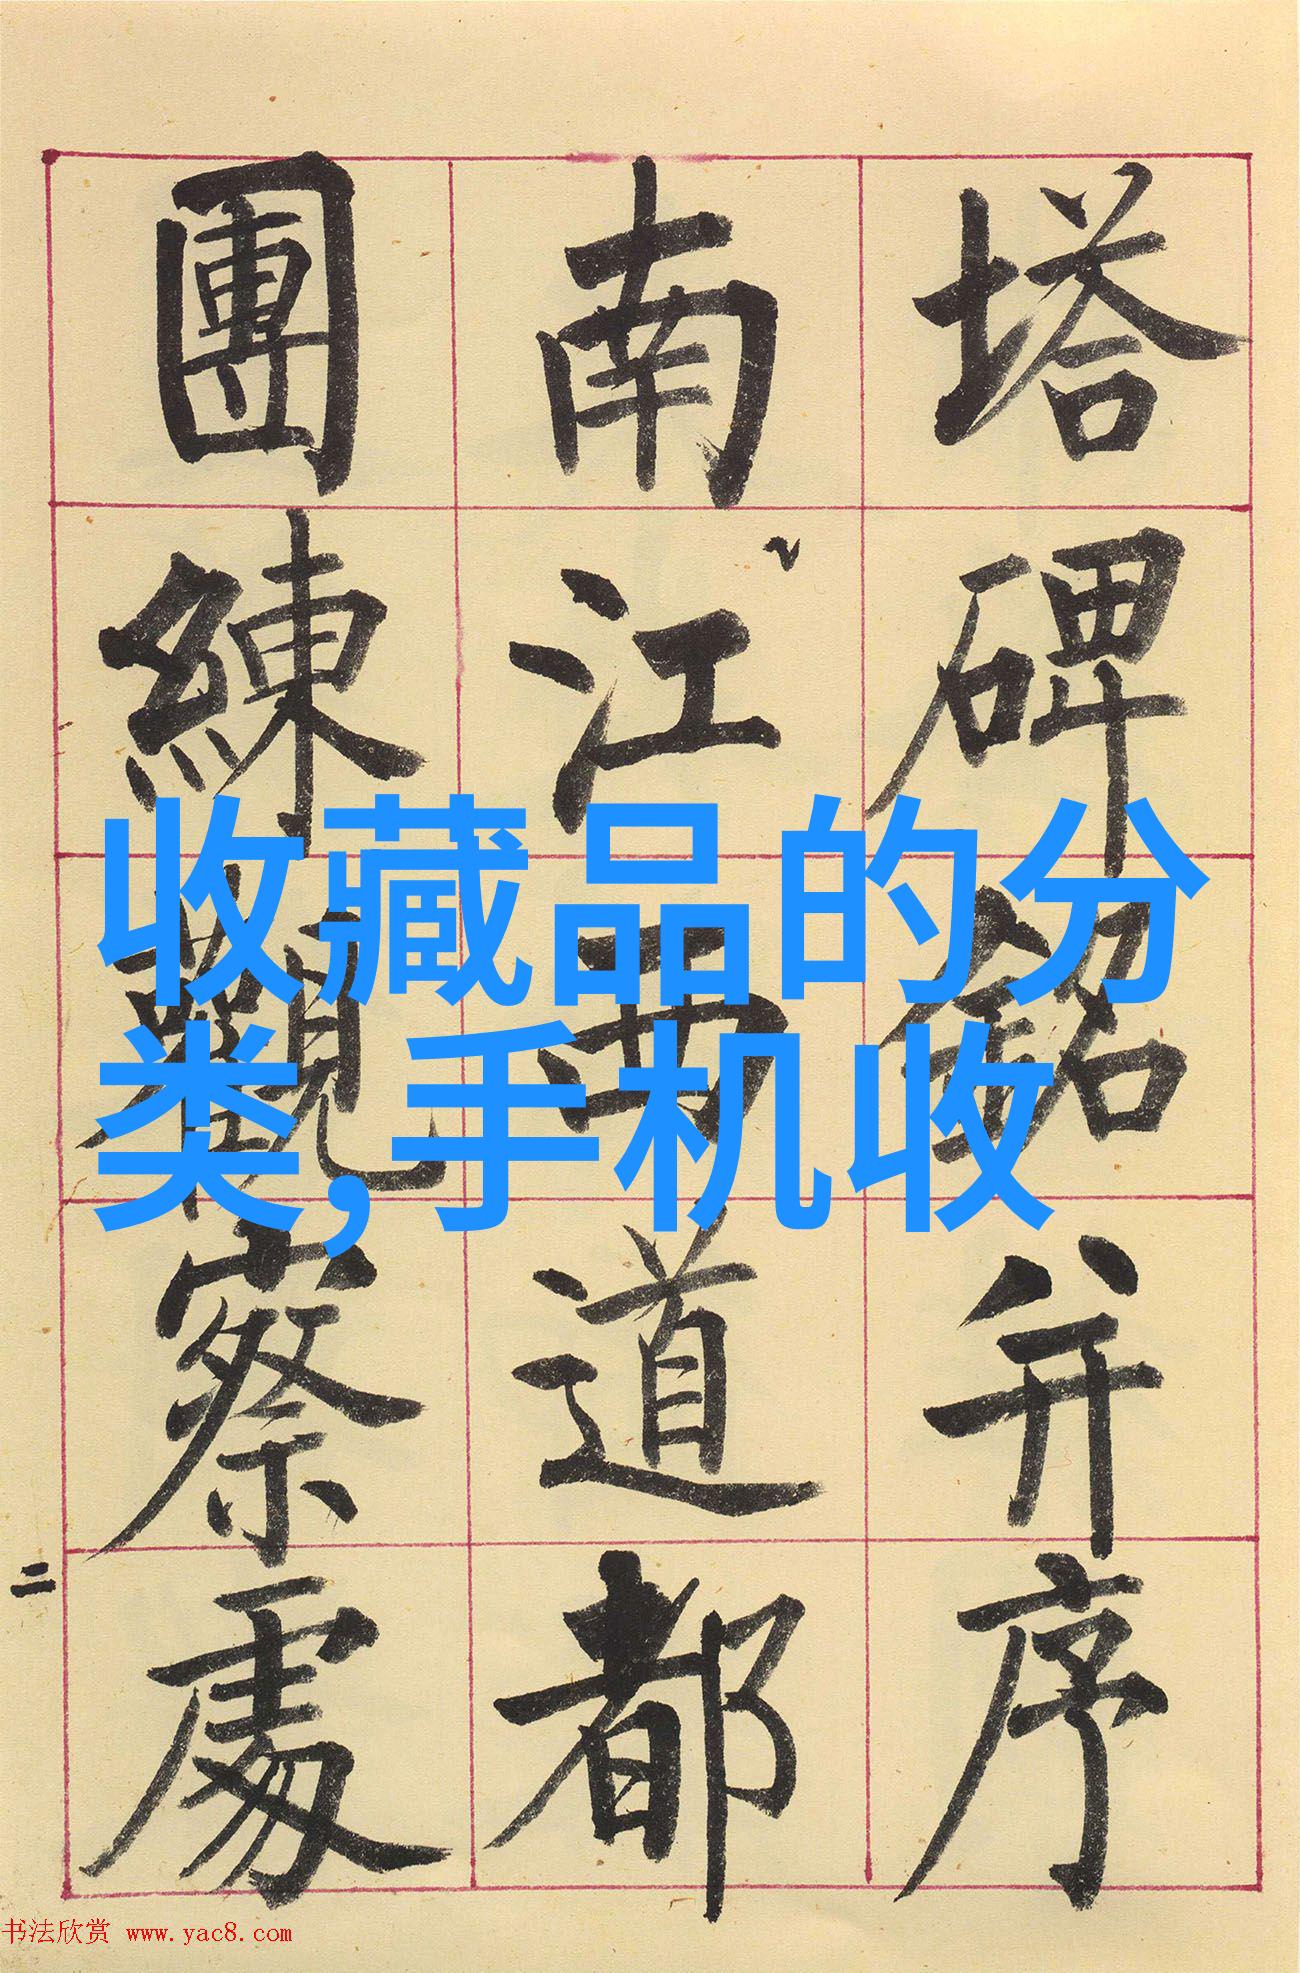 塔碑銘并序
南江西道都
團練觀察處
二
收藏品的分
类,手机收
书法欣赏 www.yac8.com